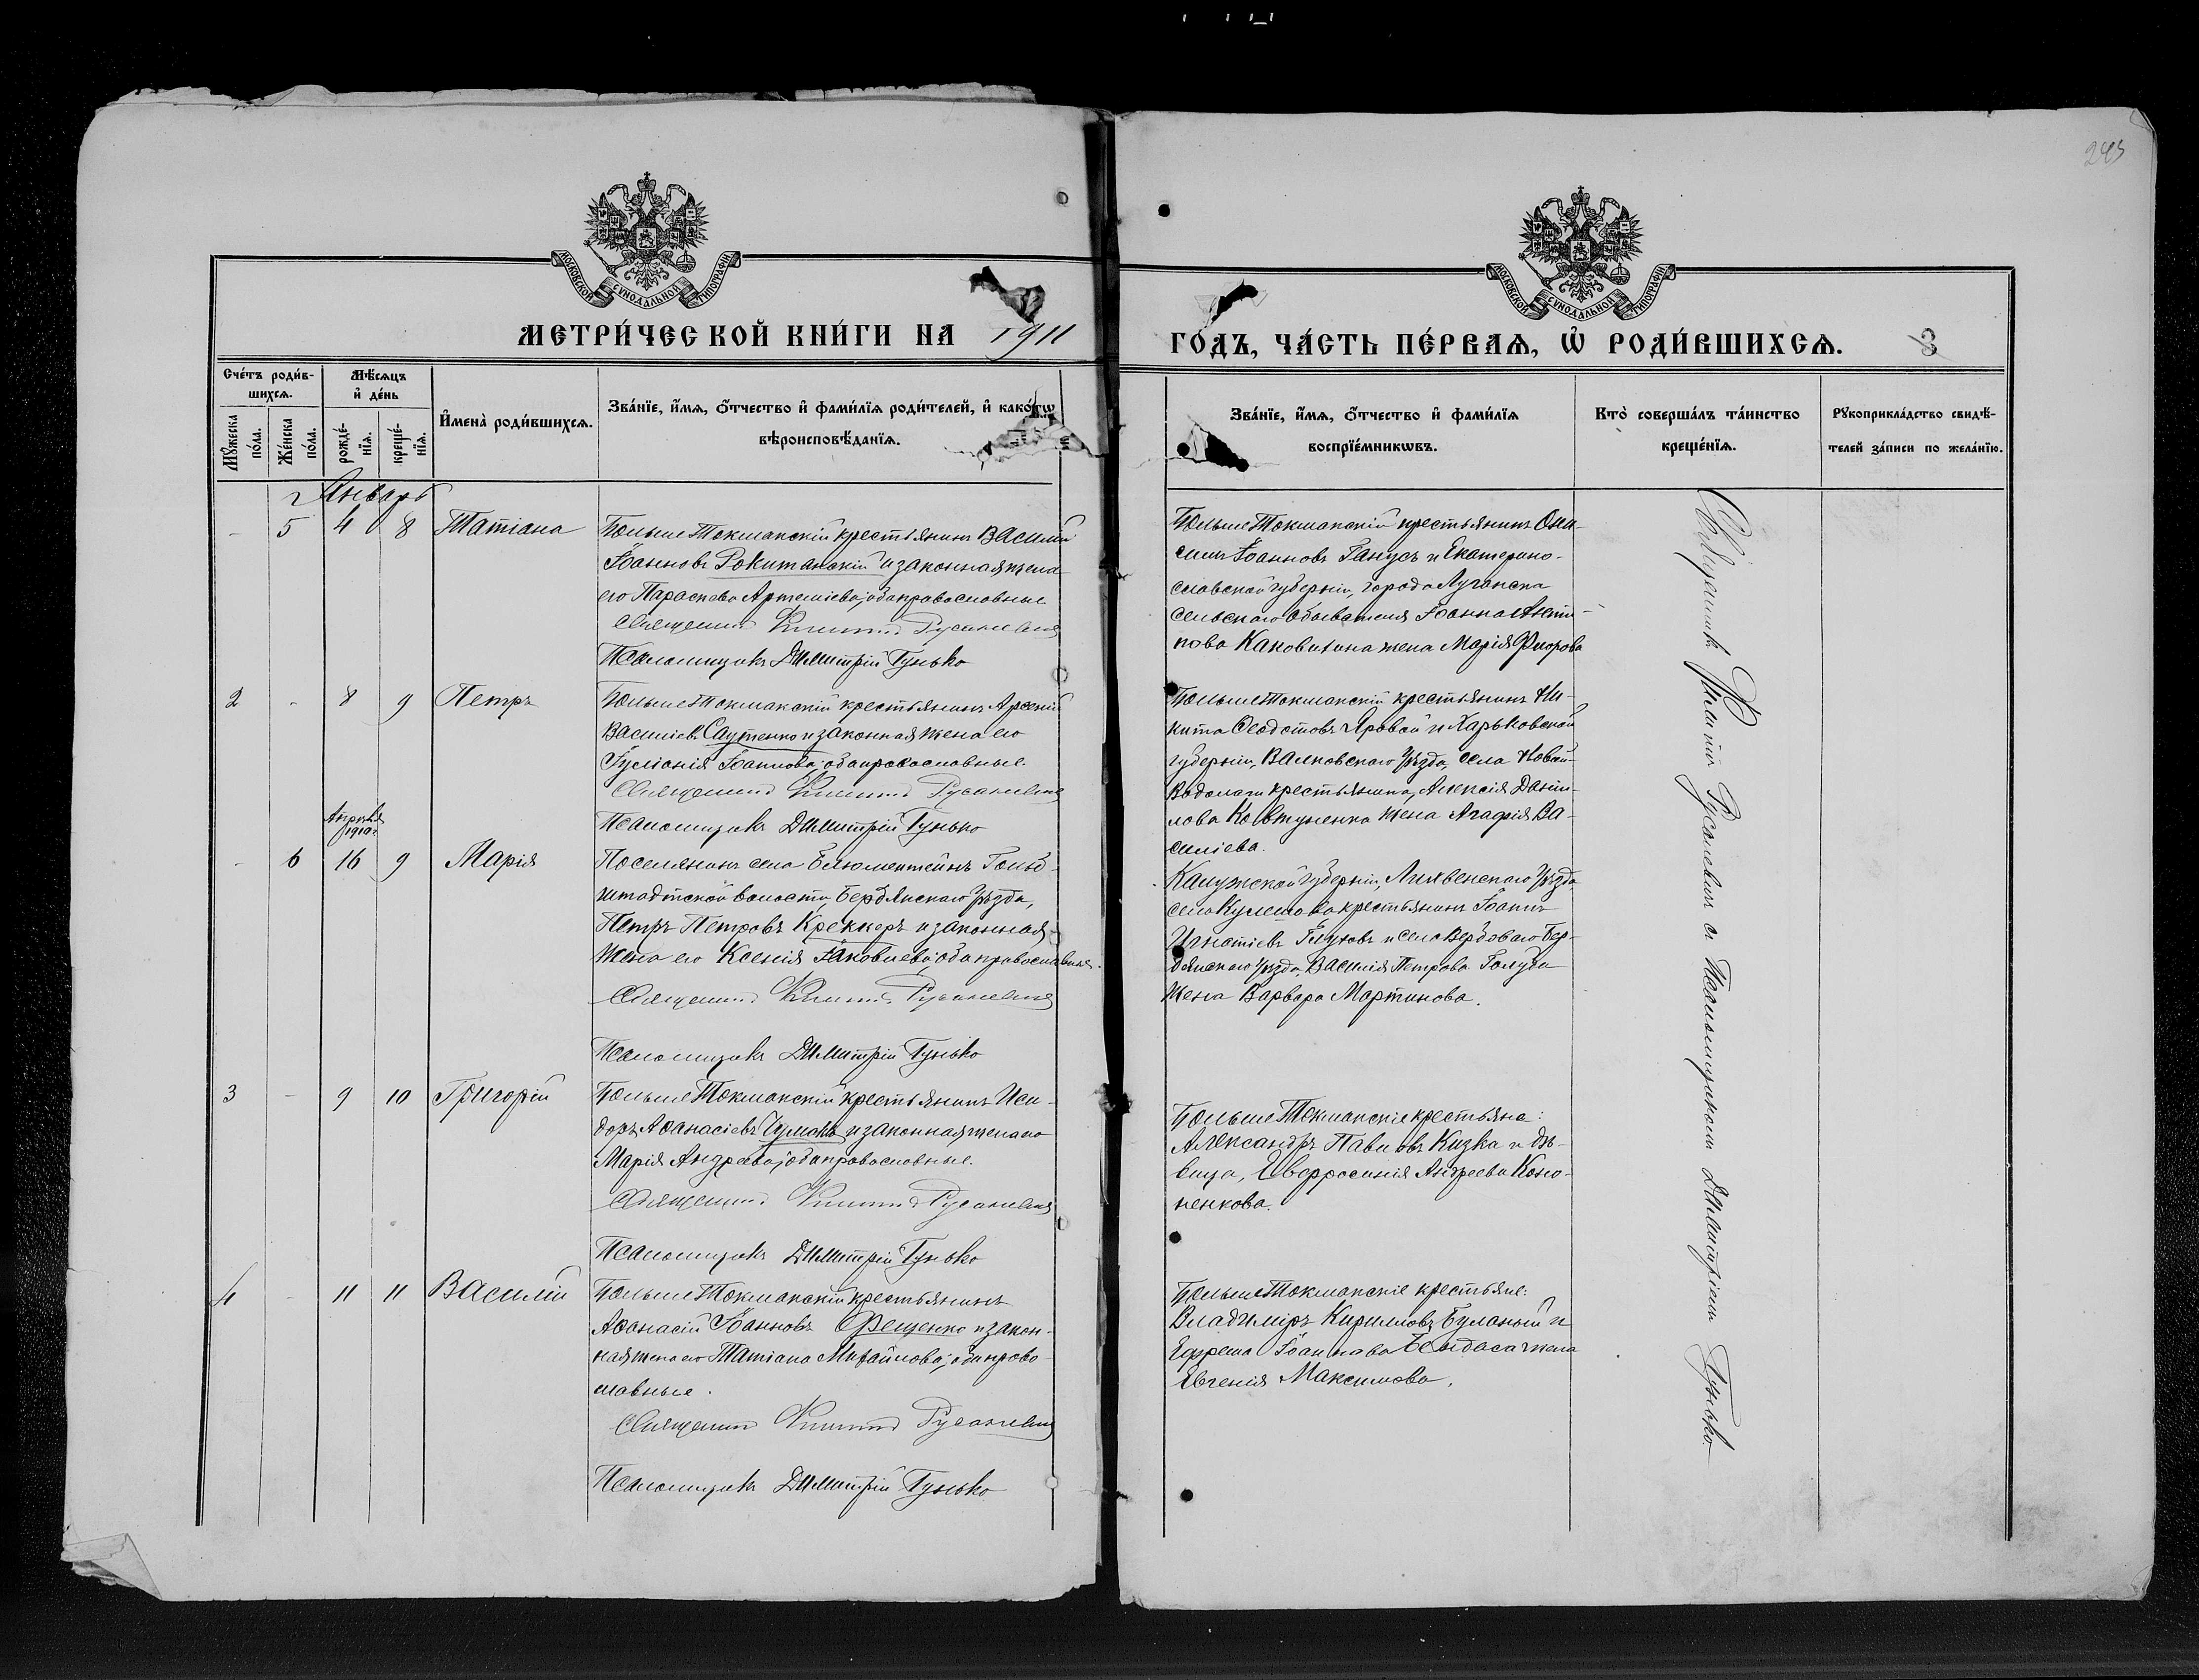 243
МОСКОВСКОЙ СѴНОДАЛЬНОЙ ТИПОГРАФІИ
МОСКОВСКОЙ СѴНОДАЛЬНОЙ ТИПОГРАФІИ
МЕТРИ́ЧЕСКОЙ КНИ́ГИ НА 1911
ГО́ДЪ, ЧА́СТЬ ПЕ́РВАѦ, Ѡ҆ РОДИ́ВШИХСѦ. 3
Сче́тъ роди́в-
шихсѧ.
Мѣ́сѧцъ
и҆ де́нь
Мꙋ́жеска по́ла.
Же́нска по́ла.
рожде́-
нїѧ.
креще́-
нїѧ.
И҆мена̀ роди́вшихсѧ.
Зва́нїе, и҆́мѧ, ѻ҆́тчество и҆ фами́лїѧ роди́телей, и҆ како́гѡ
вѣроисповѣ́данїѧ.
Зва́нїе, и҆́мѧ, ѻ҆́тчество и҆ фами́лїѧ
воспрїе́мникѡвъ.
Кто̀ соверша́лъ та́инство
креще́нїѧ.
Рꙋкоприкла́дство свидѣ́-
телей за́писи по жела́нїю.
Январь
- 5 4 8 Татіана
Больше Токмакскій крестьянинъ Василій
Іоанновъ Рокитанскій и законная жена
его Параскева Артеміева; оба православные
Священникъ Климентъ Русаневичъ
Псаломщикъ Димитрій Гунько
Больше Токмакскій крестьянинъ Они-
симъ Іоанновъ Ганусъ и Екатерино-
славской губерніи, города Луганска
сельскаго обывателя Іоанна Анти-
пова жена Марія Флорова
2 - 8 9 Петръ
Больше Токмакскій крестьянинъ Арсеній
Василіевъ Саутенко и законная жена его
Іуліанія Іоаннова; оба православные.
Священникъ Климентъ Русаневичъ
Псаломщикъ Димитрій Гунько
Больше Токмакскій крестьянинъ Ни-
кита Ѳеодотовъ Яровой и Харьковской
губерніи, Валковскаго уѣзда, села Новой-
Водолаги крестьянина, Алексія Дани-
лова Ковтуненка жена Агафія Ва-
силіева.
Апрѣля
1910 г.
- 6 16 9 Марія
Поселянинъ села Блюментейнъ Гальб-
штадтской волости, Бердянскаго уѣзда,
Петръ Петровъ Креккеръ и законная
жена его Ксенія Іаковлева; оба православные.
Священникъ Климентъ Русаневичъ
Псаломщикъ Димитрій Гунько
Калужской губерніи, Лихвенскаго уѣзда
села Кулешова крестьянинъ Іоаннъ
Игнатіевъ Глуховъ и села Вербоваго Бер-
дянскаго уѣзда, Василія Петрова Голуба
жена Варвара Мартинова.
3 - 9 10 Григорій
Больше Токмакскій крестьянинъ Иси-
доръ Аѳанасіевъ Чумакъ и законная жена его
Марія Андреева; оба православные.
Священникъ Климентъ Русаневичъ
Псаломщикъ Димитрій Гунько
Больше Токмакскіе крестьяне:
Александръ Павловъ Кизка и дѣ-
вица, Евфросинія Андреева Коно-
ненкова.
4 - 11 11 Василій
Больше Токмакскій крестьянинъ
Аѳанасій Іоанновъ Ѳещенко и закон-
ная жена его Татіана Михайлова; оба право-
славные.
Священникъ Климентъ Русаневичъ
Псаломщикъ Димитрій Гунько
Больше Токмакскіе крестьяне:
Владиміръ Кирилловъ Буланый и
Ефрема Іоаннова Бендаса жена
Евгенія Максимова.
Священникъ Климентъ Русаневичъ съ Псаломщикомъ Димитріемъ Гунько